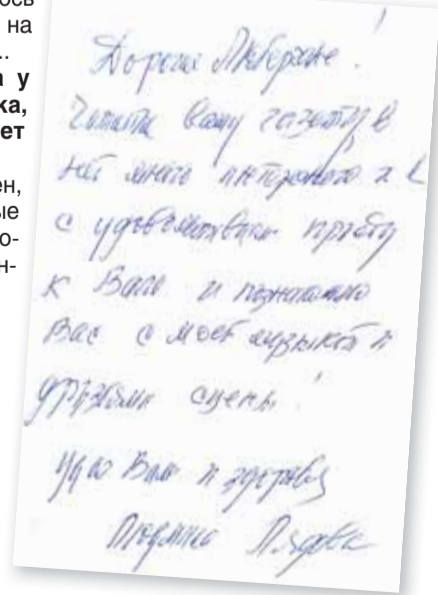 ось
на
..
а у
ка,
ет
ен,
ые
о-
н-
Дорогие Люберчане!
Читайте вашу газету в
ней много интересного я
с удовольствием приеду
к Вам и познакомлю
Вас с моей музыкой и
друзьями сцены!
Удачи Вам и здоровья
Людмила Лядова